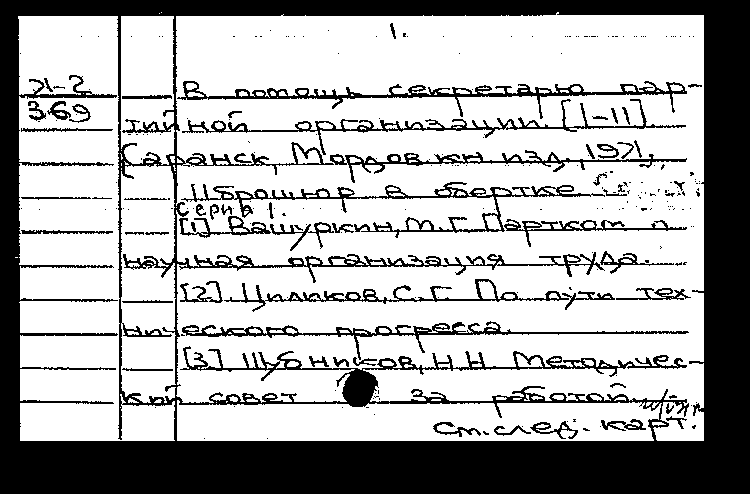 1.
71-2
369
В помощь секретарю пар-
тийной организации. [1-11].
Саранск, Мордов. кн. изд., 1971,
11 брошюр в обертке
серия 1.
[1] Вашуркин, М. Г. Партком и
научная организация труда.
[2]. Циликов, С. Г. По пути тех-
нического прогресса.
[3]. Шубников, Н. Н. Методичес-
кий совет за работой.
См. след. карт.